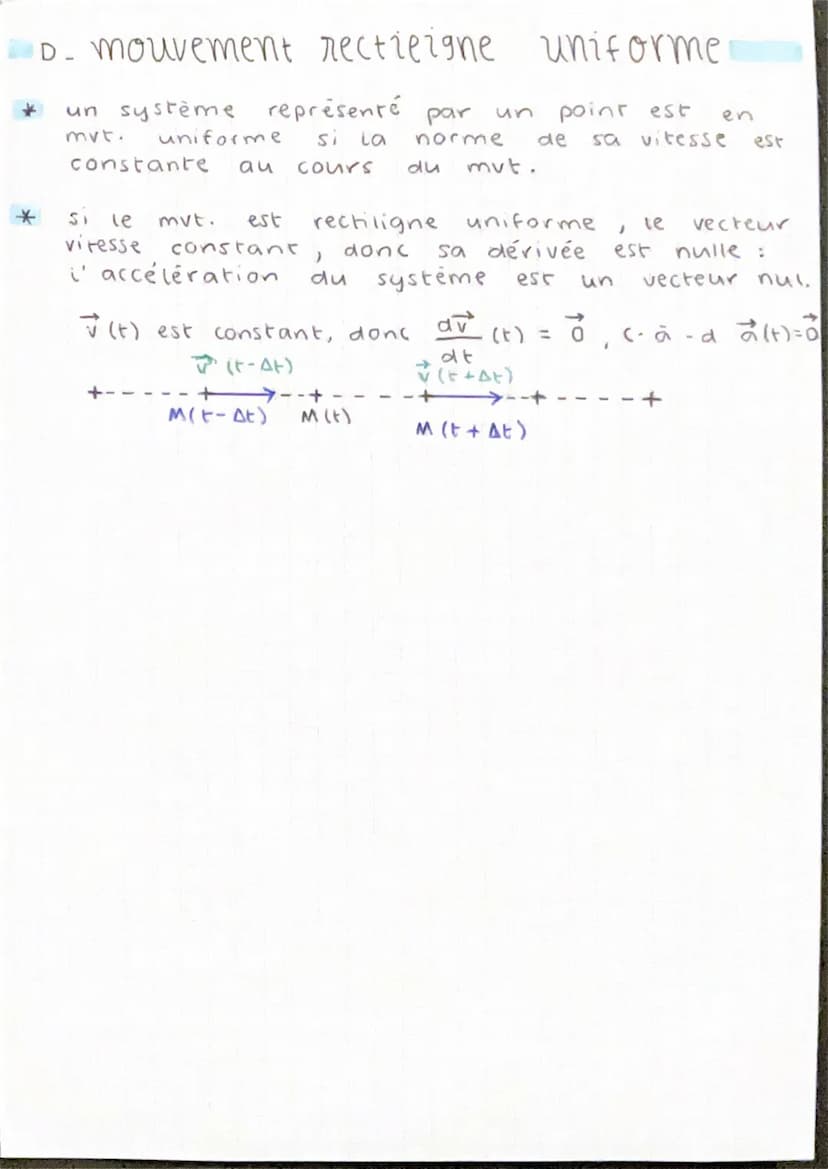 D- mouvement rectieigne uniforme
* un système représenté par un point est en
mvt. uniforme si la norme de sa vitesse est
constante au cours du mvt.
* si le mvt. est rectiligne uniforme, le vecteur
vitesse constant, donc sa dérivée est nulle :
l'accélération du système est un vecteur nul.
v⃗(t) est constant, donc dv⃗/dt (t) = 0⃗, c-à-d a⃗(t)=0⃗
v⃗(t-Δt) v⃗(t+Δt)
M(t-Δt) M(t) M(t+Δt)